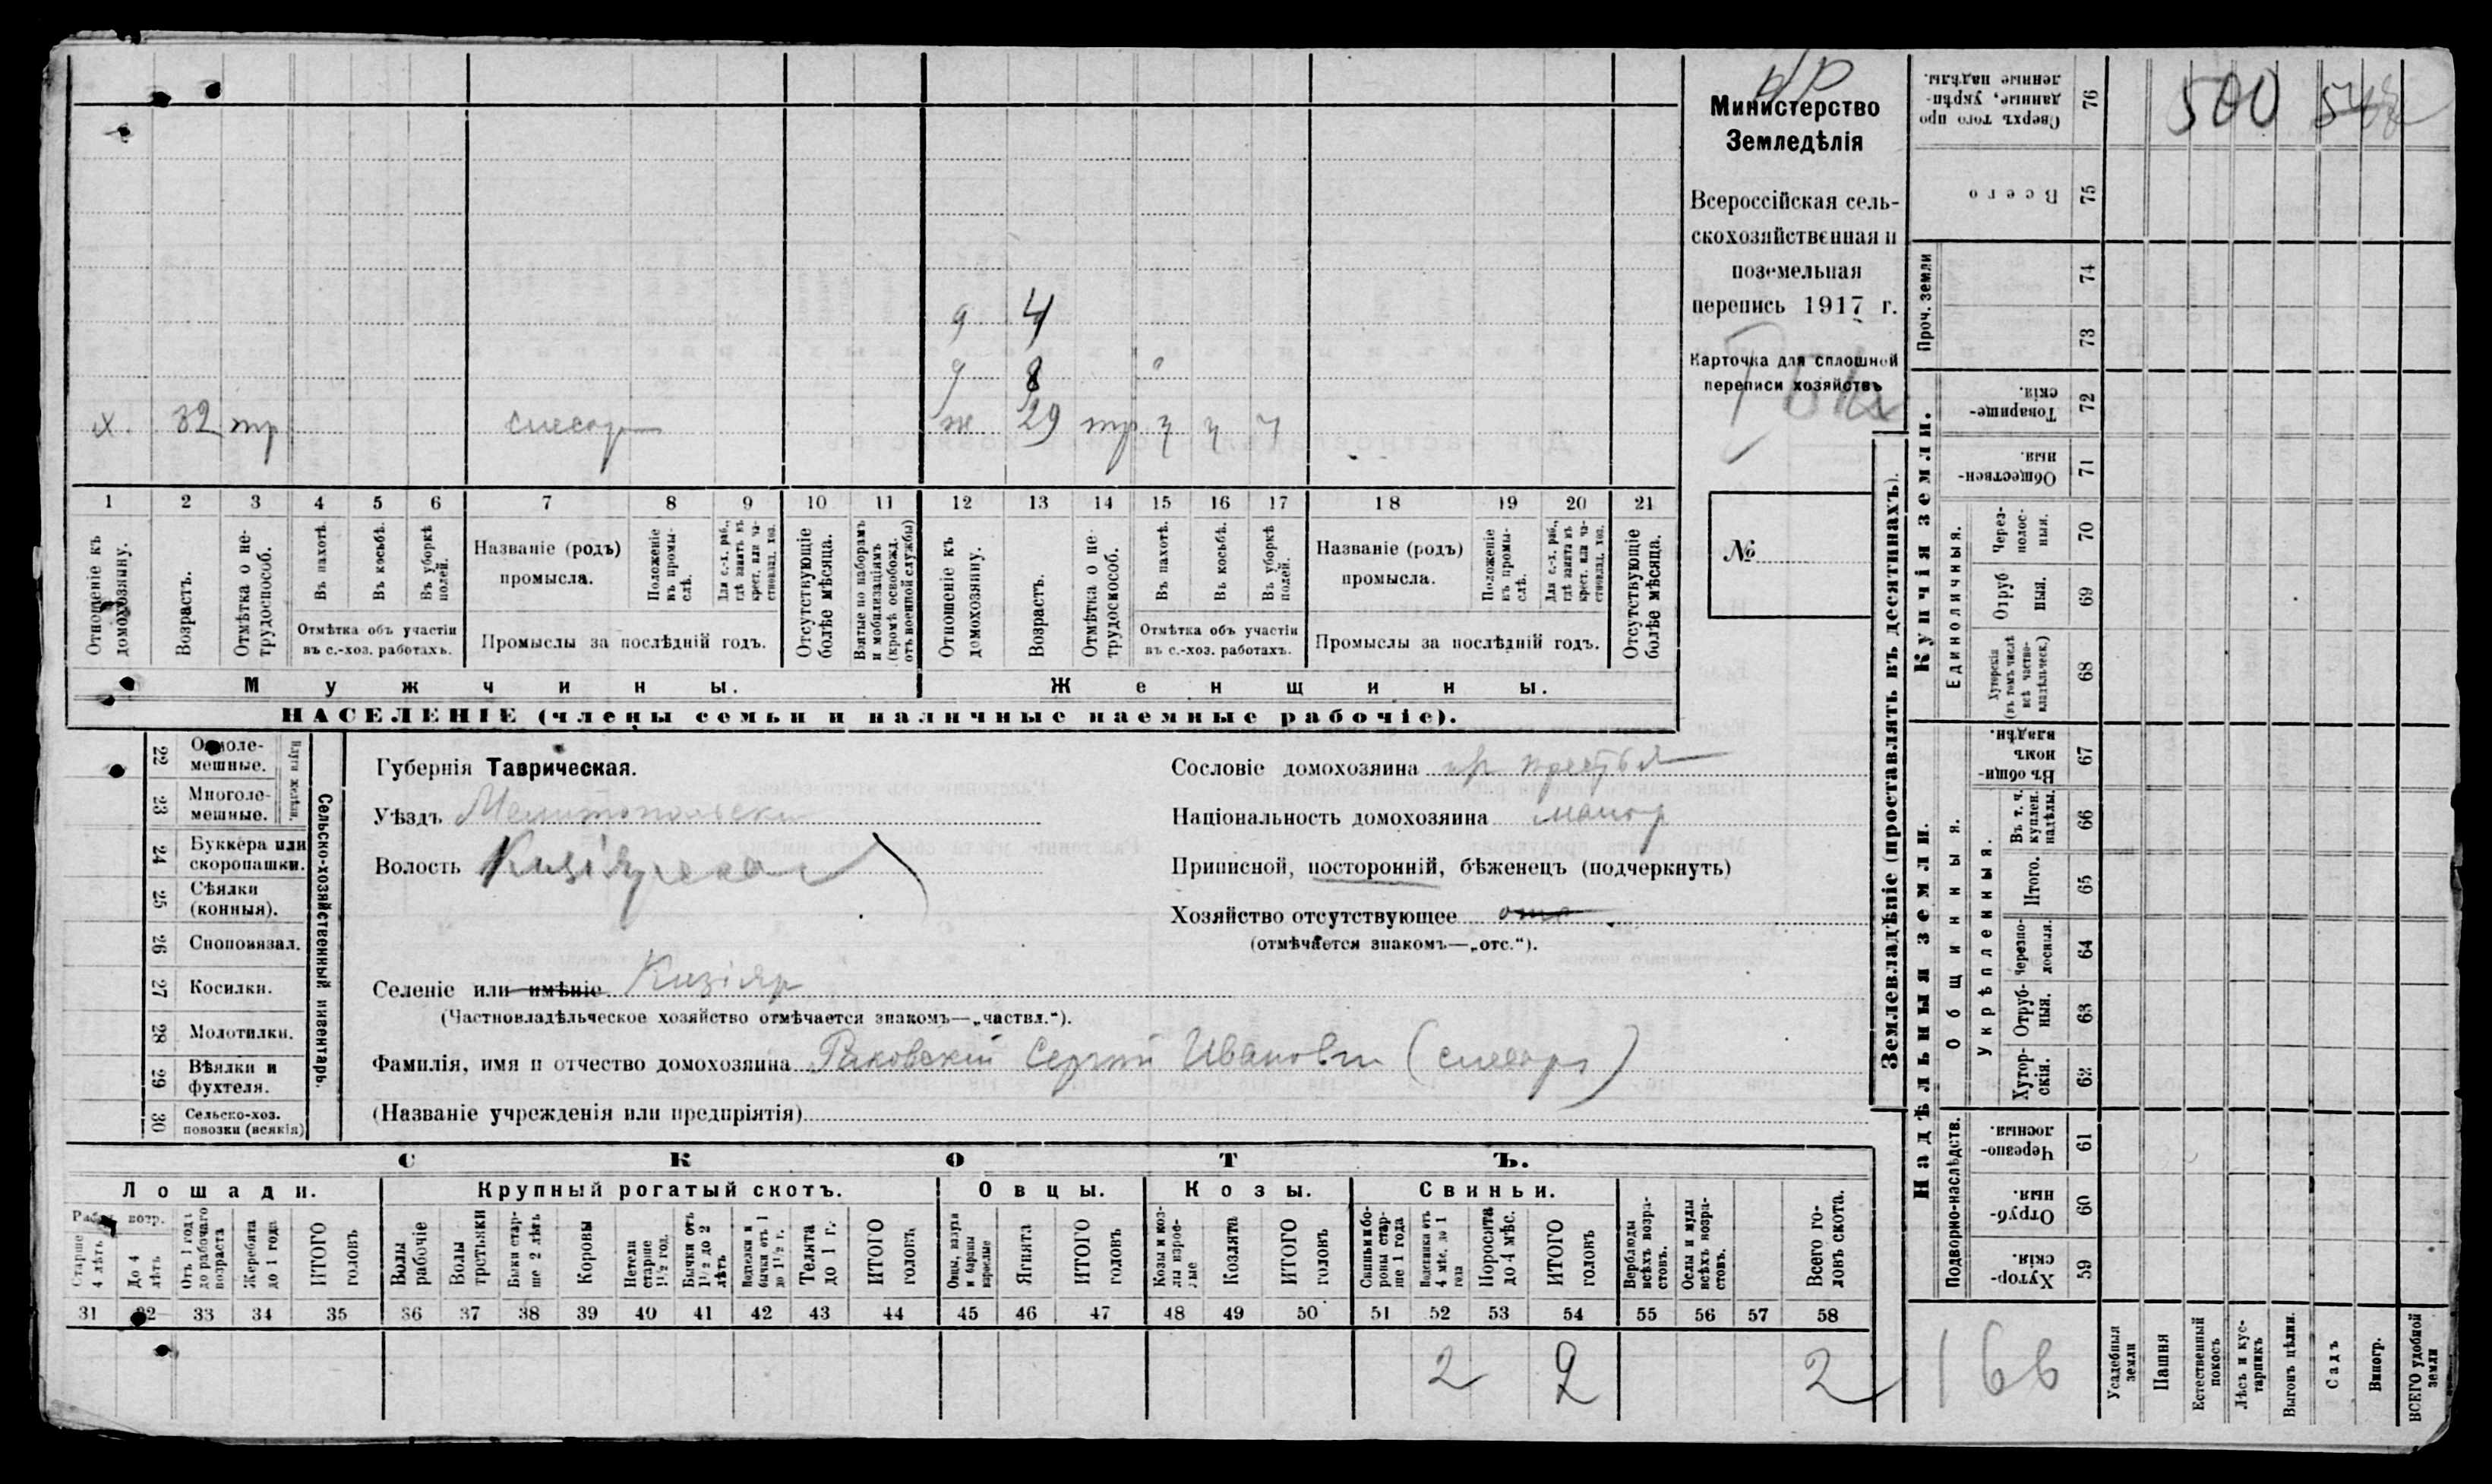 Министерство
Земледѣлія
Всероссійская сель-
скохозяйственная и
поземельная
перепись 1917 г.
Карточка для сплошной
переписи хозяйствъ
№
д 4
д 8
х. 32 тр слесарь
ж 29 тр
1 2 3 4 5 6 7 8 9 10 11 12 13 14 15 16 17 18 19 20 21
Отношеніе къ домохозяину.
Возрастъ.
Отмѣтка о нетрудоспособ.
Въ пахотѣ.
Въ косьбѣ.
Въ уборкѣ полей.
Отмѣтка объ участіи
въ с.-хоз. работахъ.
Названіе (родъ)
промысла.
Положеніе въ промы-слѣ.
Для с.-х. раб., гдѣ занятъ въ крест. или ча-стновлад. хоз.
Промыслы за послѣдній годъ.
Отсутствующіе болѣе мѣсяца.
Взятые по наборамъ и мобилизаціямъ (кромѣ освобожд. отъ военной службы)
Отношеніе къ домохозяину.
Возрастъ.
Отмѣтка о не-трудоспособ.
Въ пахотѣ.
Въ косьбѣ.
Въ уборкѣ полей.
Отмѣтка объ участіи
въ с.-хоз. работахъ.
Названіе (родъ)
промысла.
Положеніе въ промы-слѣ.
Для с.-х. раб., гдѣ занята въ крест. или ча-стновлад. хоз.
Промыслы за послѣдній годъ.
Отсутствующіе болѣе мѣсяца.
Мужчины.
Женщины.
НАСЕЛЕНІЕ (члены семьи и наличные наемные рабочіе).
Сельско-хозяйственный инвентарь.
Плуги желѣзн.
22 Одноле-
мешные.
23 Многоле-
мешные.
24 Буккера или
скоропашки.
25 Сѣялки
(конныя).
26 Сноповязал.
27 Косилки.
28 Молотилки.
29 Вѣялки и
фухтеля.
30 Сельско-хоз.
повозки (всякія)
Губернія Таврическая.
Уѣздъ Мелитопольски
Волость
Селеніе или имѣніе Кизіяр
(Частновладѣльческое хозяйство отмѣчается знакомъ—„частвл.“).
Фамилія, имя и отчество домохозяина Раковскій Сергѣй Иванович (слесарь)
(Названіе учрежденія или предпріятія)
Сословіе домохозяина
Національность домохозяина малор
Приписной, посторонній, бѣженецъ (подчеркнуть)
Хозяйство отсутствующее отс
(отмѣчается знакомъ—„отс.“).
СКОТЪ.
Лошади. Крупный рогатый скотъ. Овцы. Козы. Свиньи.
Рабоч. возр.
Старше 4 лѣтъ
До 4 лѣтъ
Отъ 1 года до рабочаго возраста
Жеребята до 1 года
ИТОГО головъ
Волы рабочіе
Волы третьяки
Быки стар-ше 2 лѣтъ
Коровы
Нетели старше 1½ год.
Бычки отъ 1½ до 2 лѣтъ
Подтелки и бычки отъ 1 до 1½ г.
Телята до 1 г.
ИТОГО головъ
Овцы, валухи и бараны взрослые
Ягнята
ИТОГО головъ
Козы и коз-лы взрос-лые
Козлята
ИТОГО головъ
Свиньи и бо-ровы стар-ше 1 года
Подсвинки отъ 4 мѣс. до 1 года
Поросята до 4 мѣс.
ИТОГО головъ
Верблюды всѣхъ возра-стовъ.
Ослы и мулы всѣхъ возра-стовъ.
Всего го-ловъ скота.
31 32 33 34 35 36 37 38 39 40 41 42 43 44 45 46 47 48 49 50 51 52 53 54 55 56 57 58
2 2 2
Землевладѣніе (проставлять въ десятинахъ).
Сверхъ того про
данные, укрѣп-
ленные надѣлы. 76
500
Всего 75
Проч. земли
74
73
Купчія земли.
Товарище-
скія. 72
Обществен-
ныя. 71
Единоличныя.
Через-
полос-
ныя. 70
Отруб
ныя. 69
Хуторскія
(въ томъ числѣ
всѣ частно-
владѣльческ.) 68
Надѣльныя земли.
Общинныя.
Въ общин-
номъ
владѣн. 67
Укрѣпленныя.
Въ т. ч.
куплен.
надѣлы. 66
Итого. 65
Черезпо-
лосныя. 64
Отруб-
ныя. 63
Хутор-
скія. 62
Подворно-наслѣдств.
Черезпо-
лосныя. 61
Отруб-
ныя. 60
Хутор-
скія. 59
166
Усадебныя земли
Пашня
Естественный покосъ
Лѣсъ и кус-тарникъ
Выгонъ цѣлин.
Садъ
Виногр.
ВСЕГО удобной земли